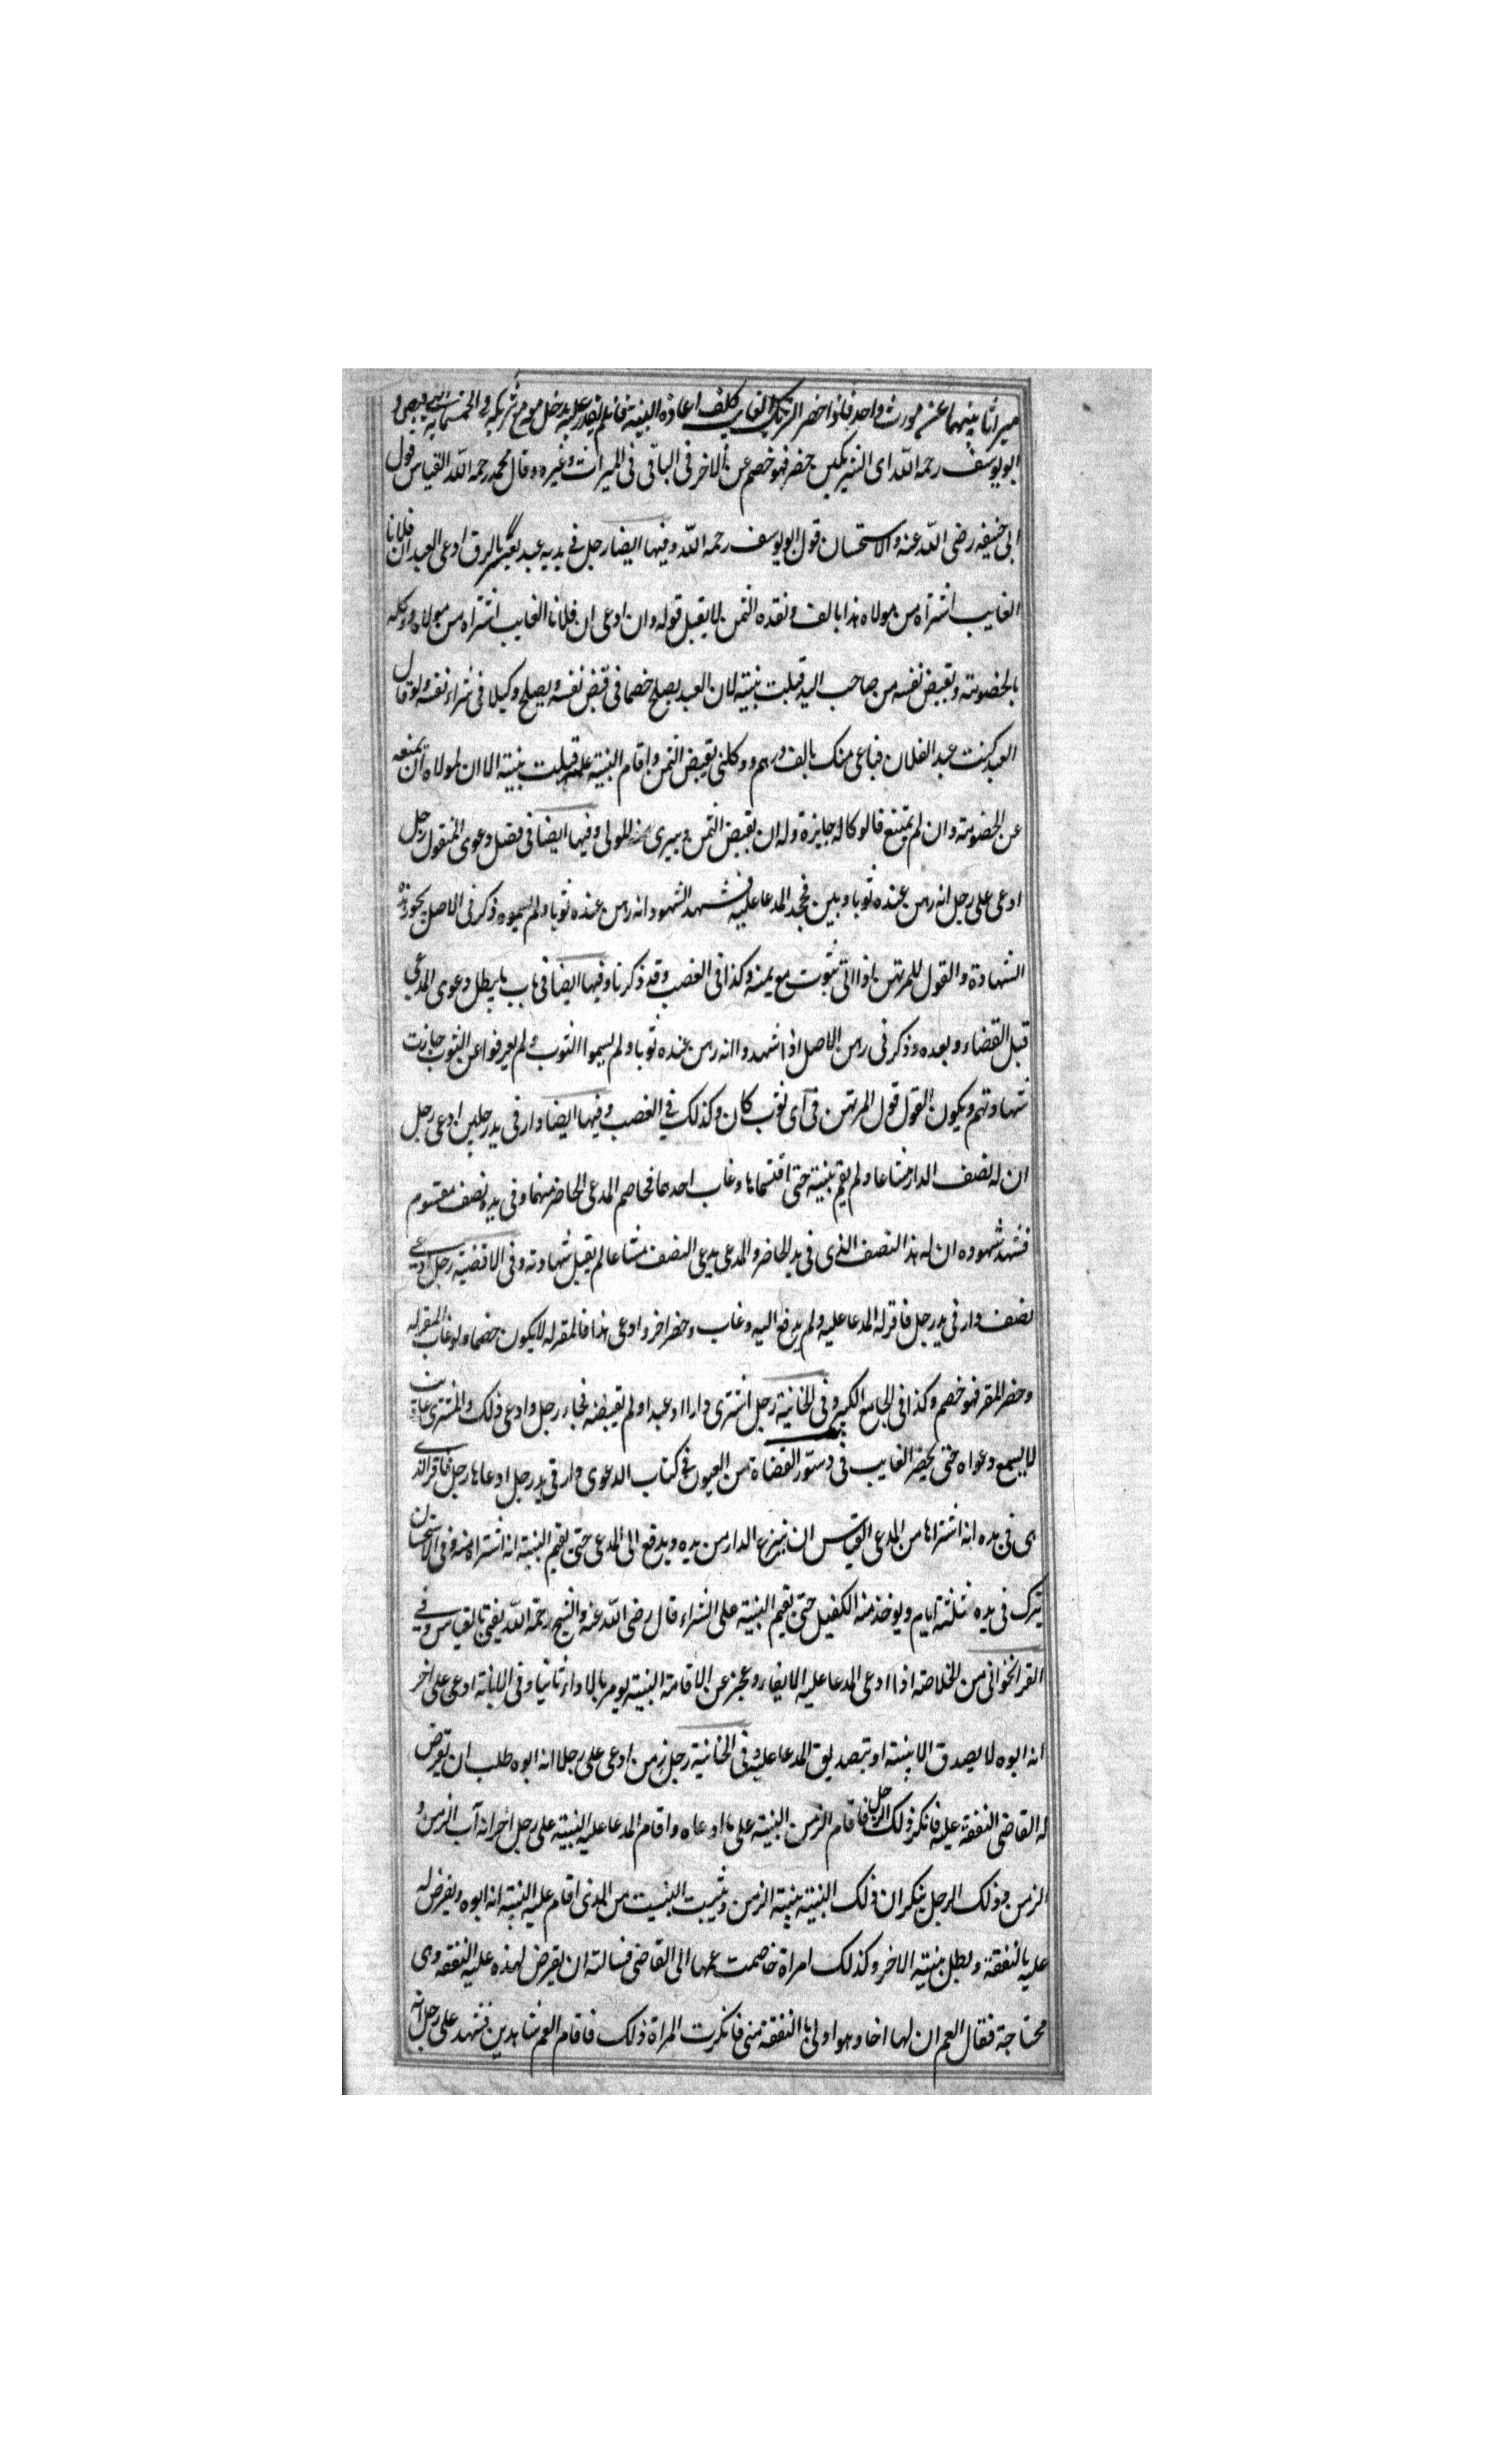 ميراثا بينهما عن مورث واحد فاذا حضر الشريك الغايب كلف اعادة البينة فان لم يقدر عليه يدخل مع شريكه في الخمسماية
ابو يوسف رحمه الله اى الشريكين حضر فهو خصم عن الاخر فى الباقى فى الميراث وغيره وقال محمد رحمه الله القياس قول
ابى حنيفه رضى الله عنه والاستحسان قول ابو يوسف رحمه الله وفيها ايضا رجل فى يديه عبد يقر بالرق ادعى العبد ان فلانا
الغايب اشتراه من مولاه هذا بالف ونقده الثمن لا يقبل قوله وان ادعى ان فلانا الغايب اشتراه من مولاه ووكله
بالخصومته وبقبض نفسه من صاحب اليد قبلت بينته لان العبد يصلح خصما فى قبض نفسه ويصلح وكيلا فى شراء نفسه ولو قال
العبد كنت عبد الفلان فباعى منك بالف درهم ووكلنى بقبض الثمن واقام البينة عليه قبلت بينته الا ان لمولاه ان يمنعه
عن الخصومته وان لم يمتنع فالوكاله جايزة وله ان يقبض الثمن ويبرى المولى وفيها ايضا فى فصل دعوى المنقول رجل
ادعى على رجل انه رهن عنده ثوبا وبين فجحد المدعا عليه فشهد الشهود انه رهن عنده ثوبا ولم يسموه ذكر فى الاصل يجوز هذه
الشهادة والقول للمرتهن اذا اتى بثوب مع يمينه وكذا فى الغصب وقد ذكرنا وفيها ايضا فى باب ما يبطل دعوى المدعى
قبل القضاء وبعده وذكر فى رهن الاصل اذا شهدوا انه رهن عنده ثوبا ولم يسموا الثوب ولم يعرفوا عن الثوب جازت
شهادتهم ويكون القول قول المرتهن فى اى ثوب كان وكذلك فى الغصب وفيها ايضا دار فى يد رجلين ادعى رجل
ان له نصف الدار مشاعا ولم يقم بينته حتى اقتسماها وغاب احدهما فخاصم المدعى الحاضر منهما وفى يده نصف مقسوم
فشهد شهوده ان له هذا النصف الذى فى يد الحاضر والمدعى يدعى النصف مشاعا لم يقبل شهادته وفى الاقضيه رجل ادعى
نصف دار فى يد رجل فاقر له المدعا عليه ولم يدفع اليه وغاب وحضر اخر وادعى هذا فالمقر له لا يكون خصما ولو غاب المقر له
وحضر المقر فهو خصم وكذا فى الجامع الكبير وفى الخانية رجل اشترى دارا او عبدا ولم يقبضه فجاء رجل وادعى ذلك والمشترى غايب
لا يسمع دعواه حتى يحضر الغايب فى دستور القضاة من العيون فى كتاب الدعوى دار فى يد رجل ادعاها رجل فاقر الذى
هى فى يده انه اشتراها من المدعى القياس ان ينزع الدار من يده ويدفع الى المدعى حتى يقيم البينة انه اشتراه منه وفى الاستحسان
يترك فى يده ثلثة ايام ويوخذ منه الكفيل حتى يقيم البينة على الشراء قال رضى الله عنه والشيخ رحمة الله يفتى بالقياس وفى
القراخوانى من الخلاصه اذا ادعى المدعا عليه الايفا وعجز عن الاقامة البينة يومر بالاداء ثانيا وفى الابانة ادعى على اخر
انه ابوه لا يصدق الا ببينته او بتصديق المدعا عليه وفى الخانية رجل زمن ادعى على رجل انه ابوه طلب ان يفرض
له القاضى النفقة عليه فانكر ذلك الرجل فاقام الزمن البينة على ما ادعاه واقام المدعا عليه البينة على رجل اخر انه اب الزمن و
الزمن وذلك الرجل ينكران ذلك البينة بينة الزمن ويثبت النسب من الذى اقام عليه البينة انه ابوه ويفرض له
عليه بالنفقة وبطل بينة الاخر وكذلك امراة خاصمت عمها الى القاضى فسالته ان يفرض لهذه عليه النفقه وهى
محتاجة فقال العم ان لها اخا وهو اولى بالنفقة منى فانكرت المراة ذلك فاقام العم شاهدين فشهد على رجل انه